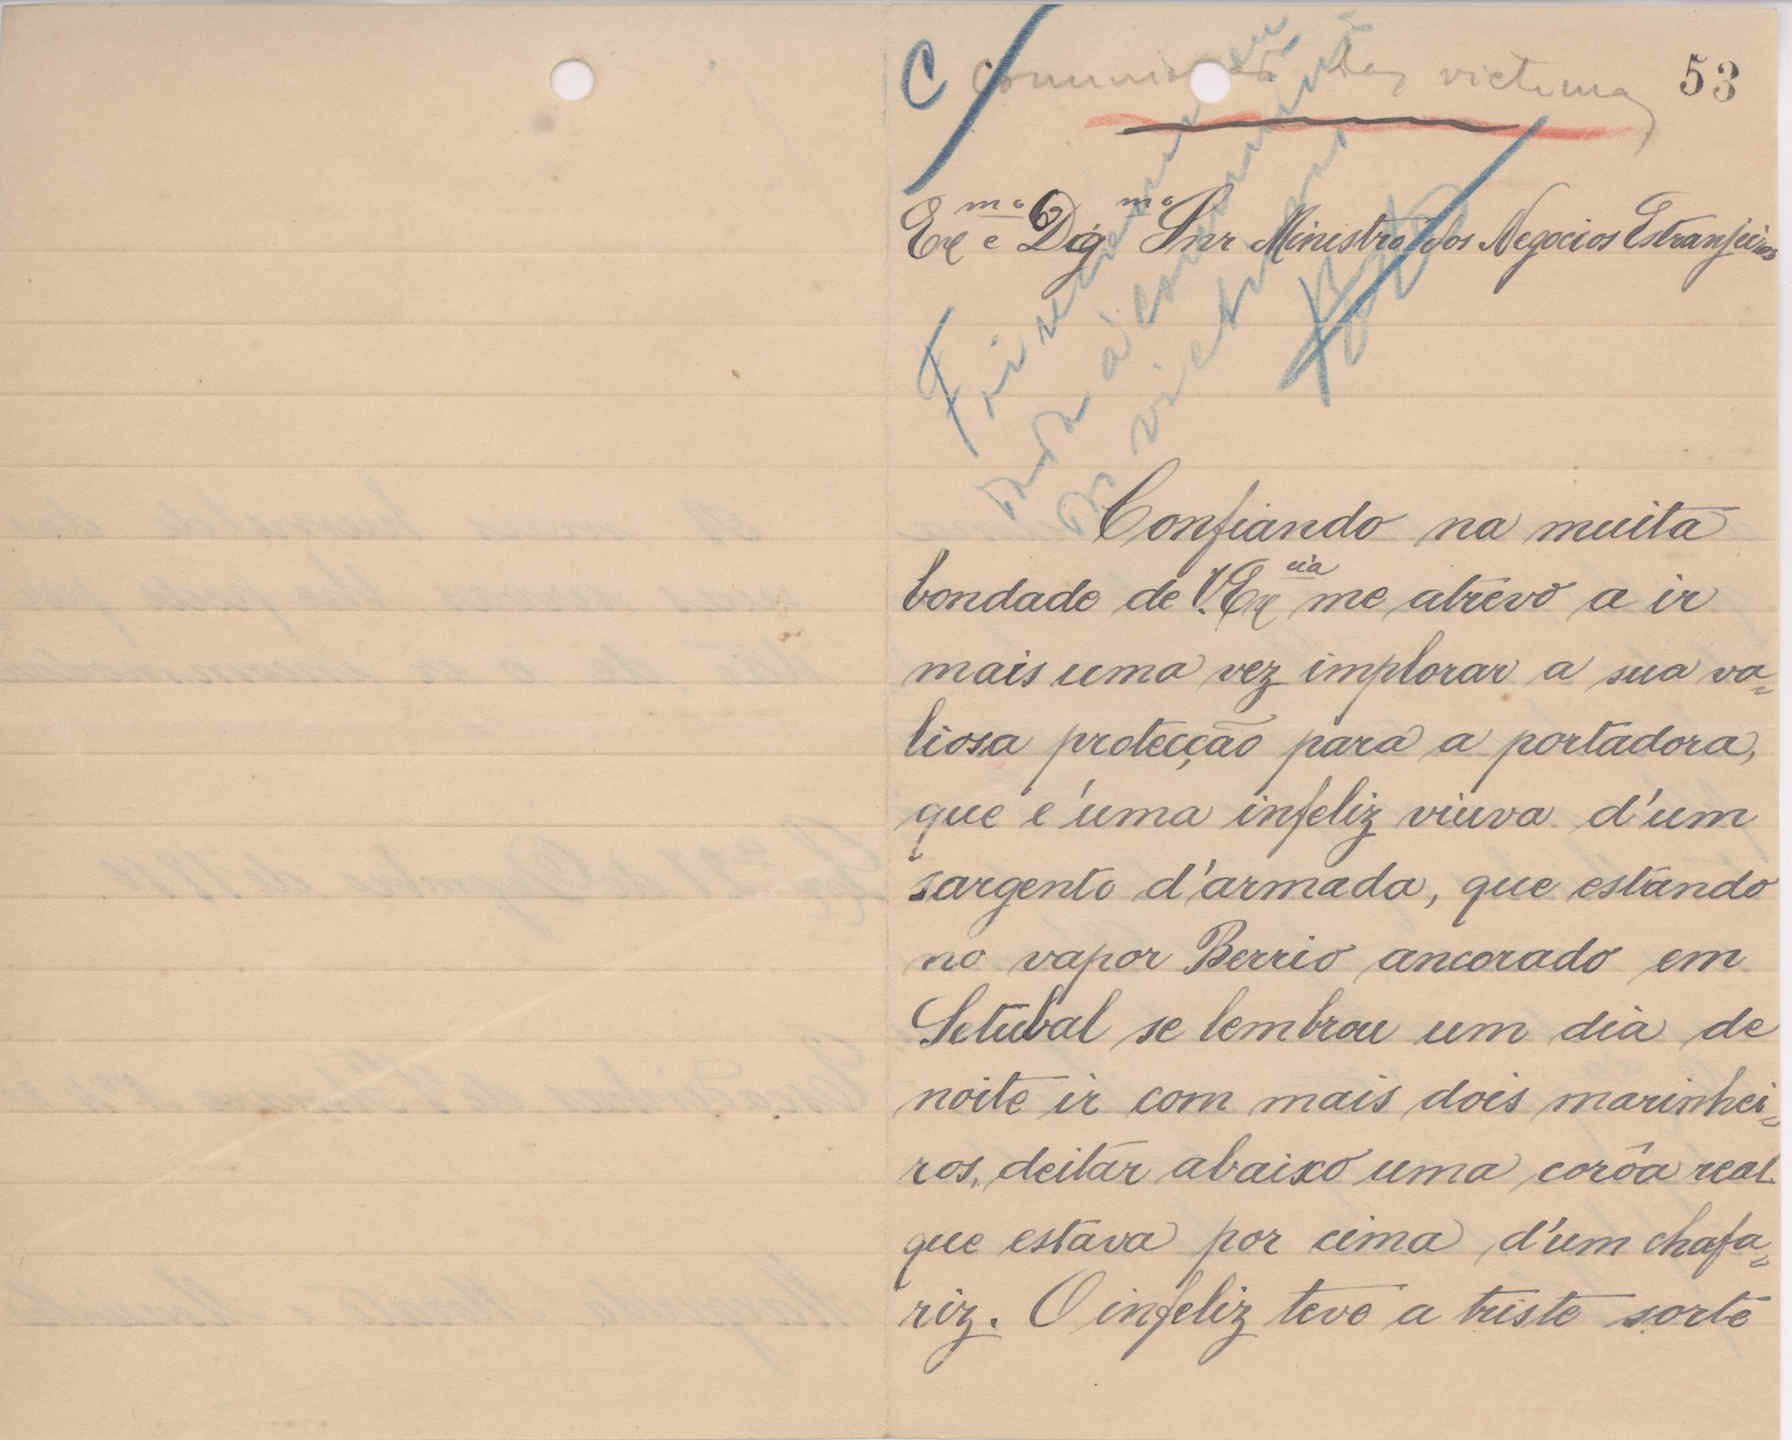 C
Commissão das victimas
53
Exmo e Digmo Snr Ministro dos Negocios Estranjeiros
Foi
ás victimas
Confiando na muita
bondade de V. Excia me atrevo a ir
mais uma vez implorar a sua va=
liosa protecção para a portadora,
que é uma infeliz viuva d'um
sargento d'armada, que estando
no vapor Berrio ancorado em
Setubal se lembrou um dia de
noite ir com mais dois marinhei=
ros, deitar abaixo uma corôa real
que estava por cima d'um chafa=
riz. O infeliz teve a triste sorte